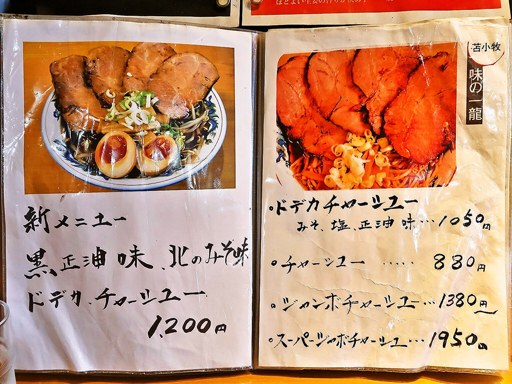 新メニュー
黒正油味、北のみそ味
ドデカ、チャーシュー
1,200円
苫小牧
味の一龍
・ドデカチャーシュー
みそ、塩、正油味…1050円
・チャーシュー ‥‥‥ 880円
・ジャンボチャーシュー…1380円
・スーパージャンボチャーシュー…1950円